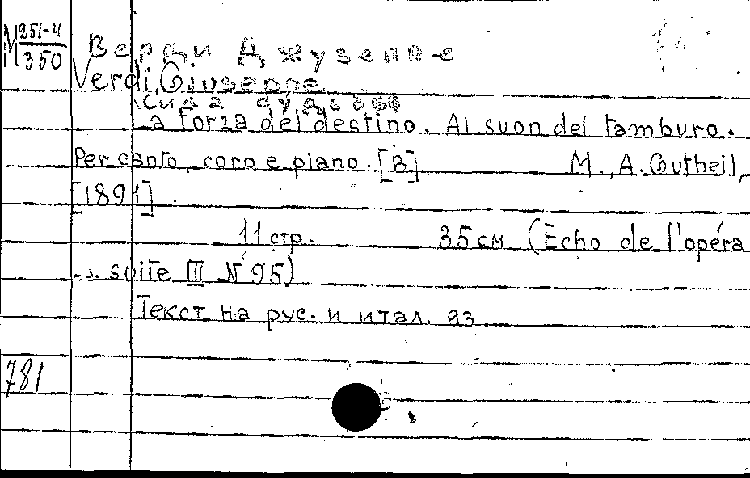 M 251-4
350
Верди Джузеппе
Verdi, Giuseppe
Сила судьбы
La forza del destino. Al suon del tamburo.
Per canto, coro e piano. [B]    M., A. Gutheil,
[1891]
11 стр.    35 см (Echo de l'opéra
... suite III N 95)
Текст на рус. и итал. яз
781